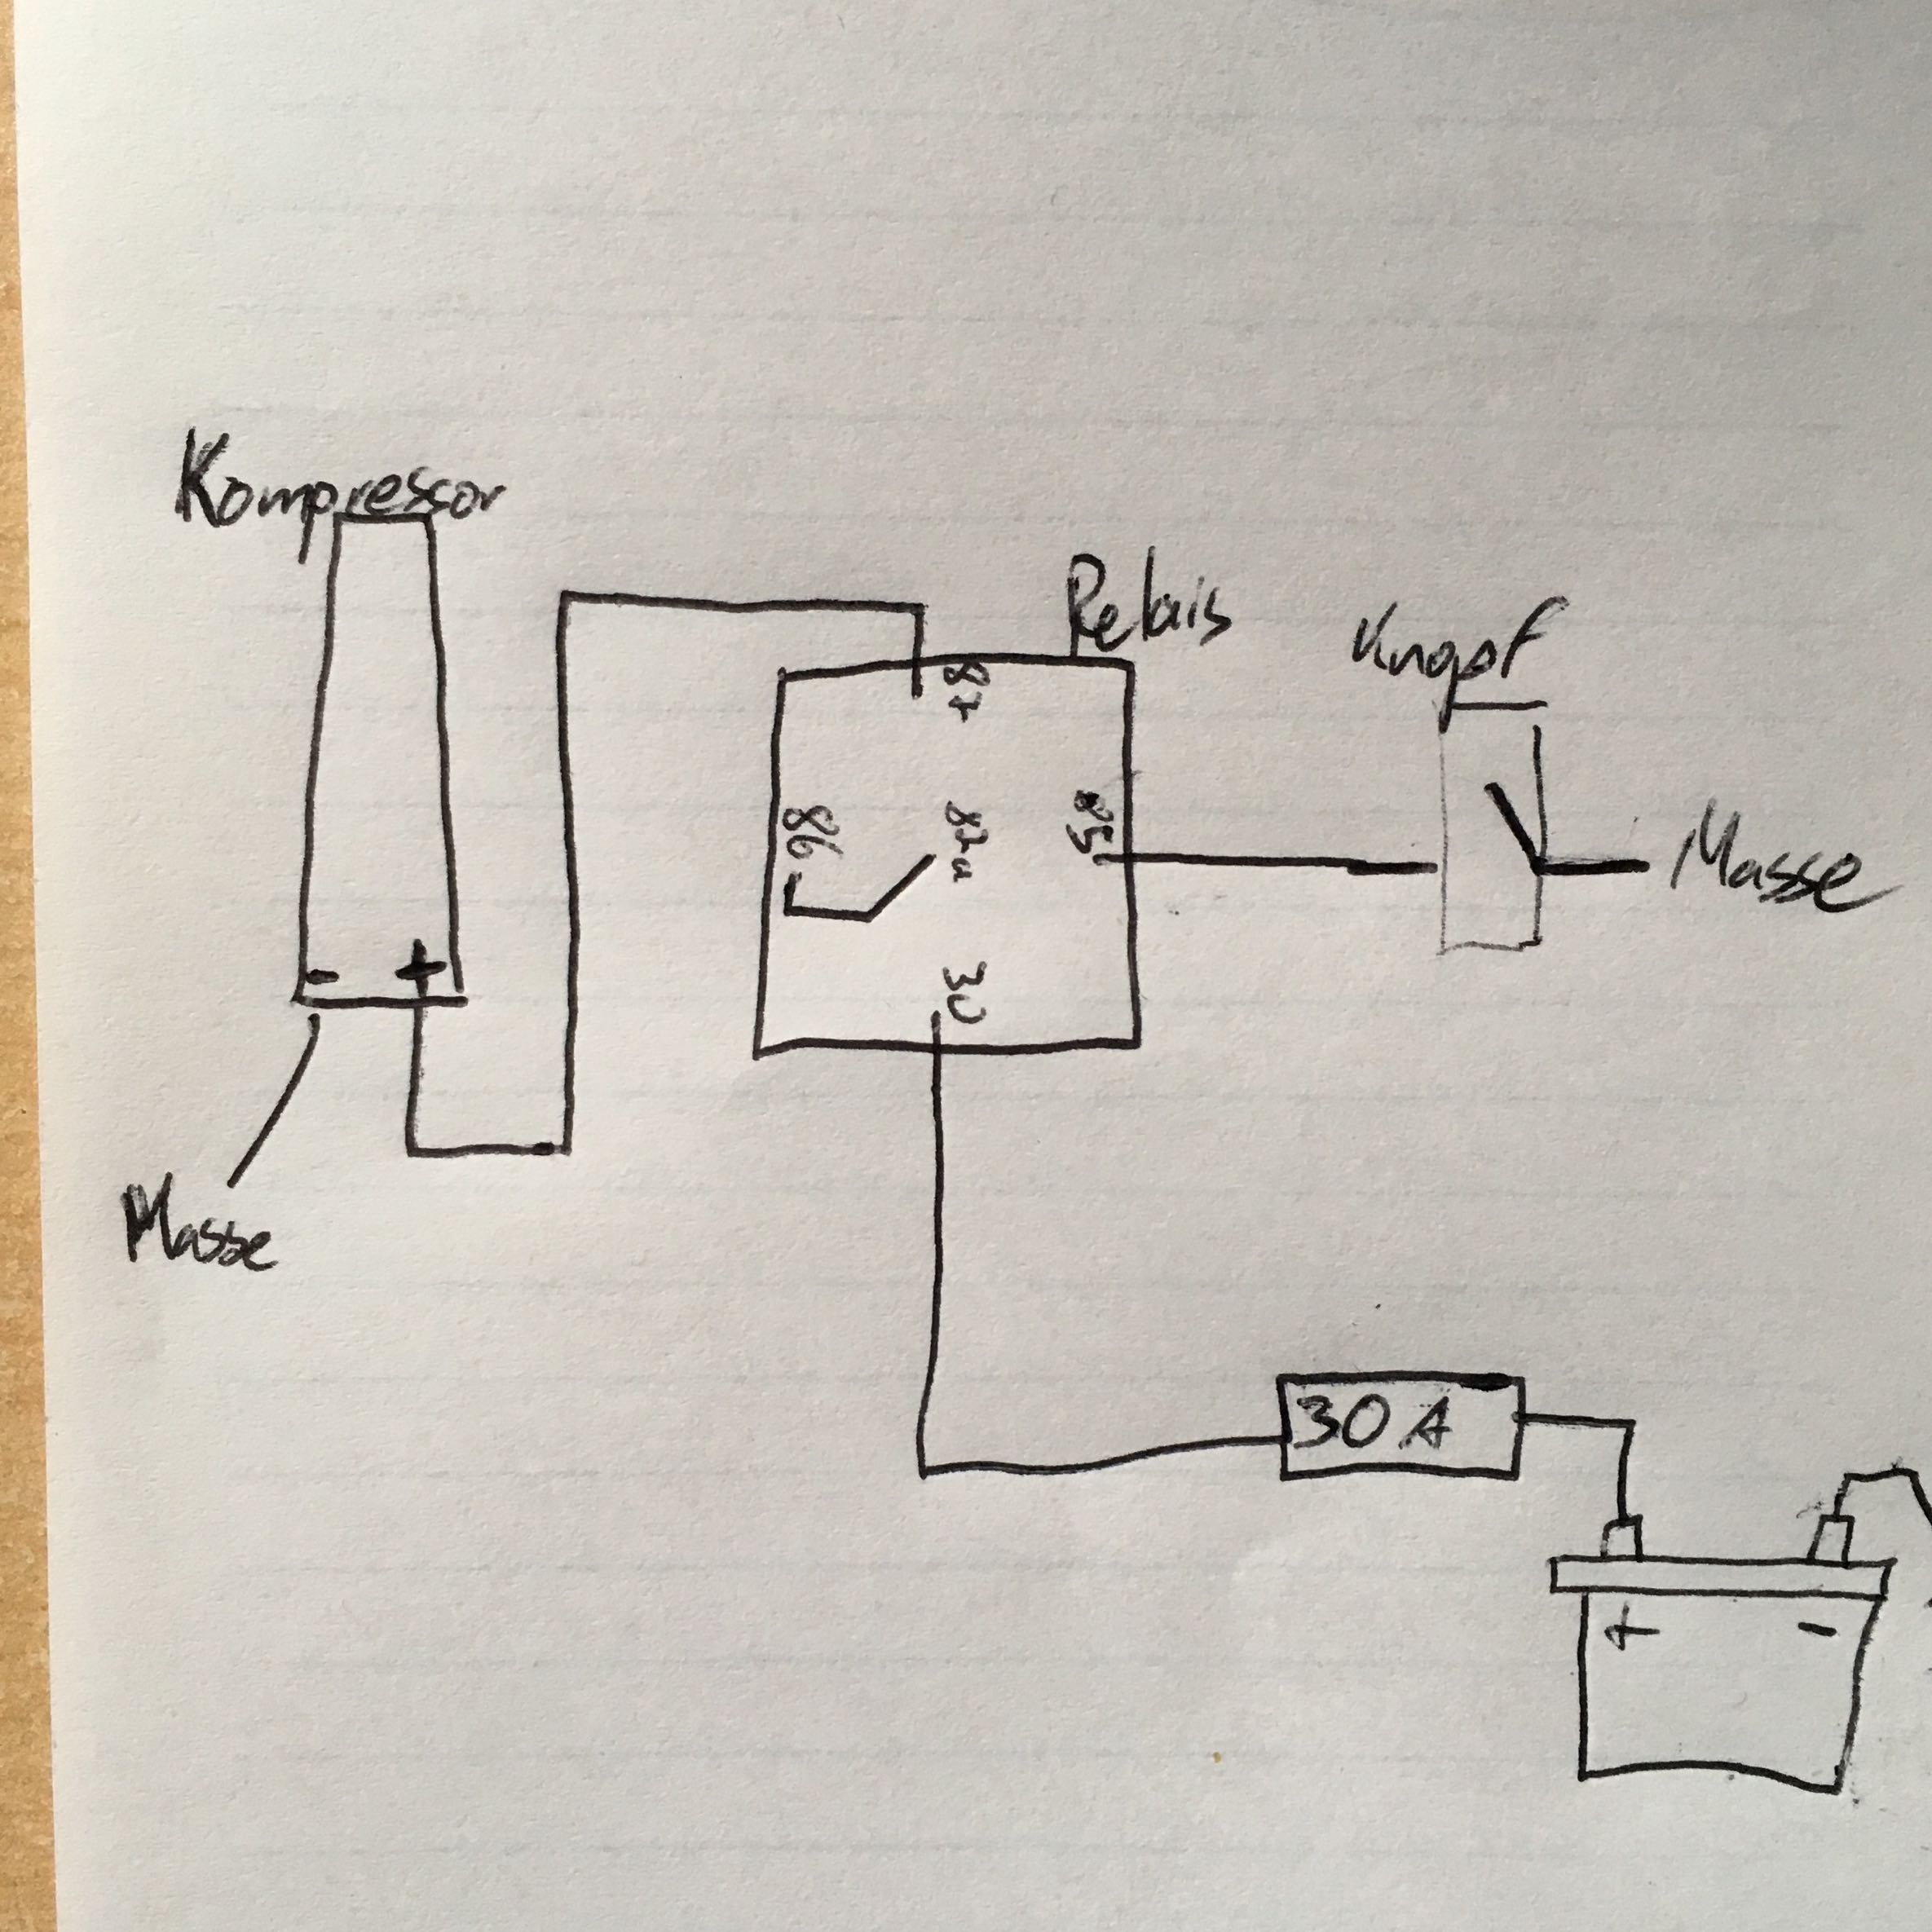 Kompressor
Relais
Knopf
87
86
87a
85
Masse
- +
30
Masse
30 A
+ -